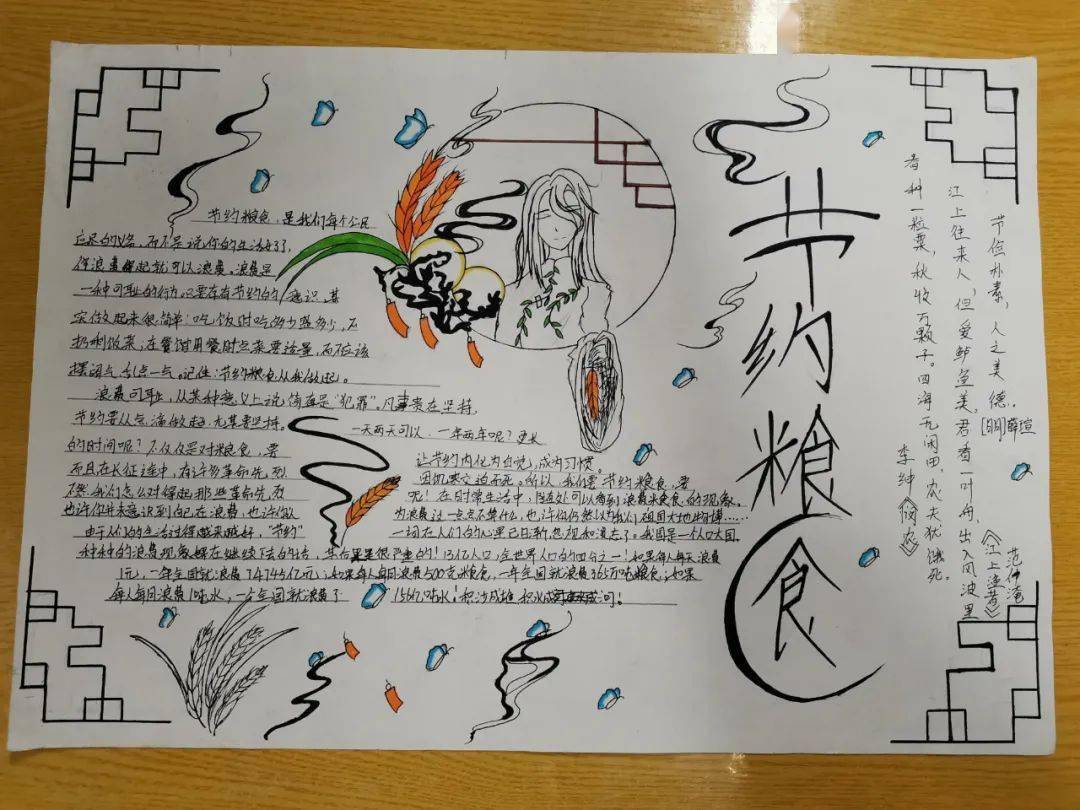 节约粮食
节俭朴素，人之美德。
[明]薛瑄
江上往来人，但爱鲈鱼美，君看一叶舟，出入风波里
范仲淹
《江上渔者》
春种一粒粟，秋收万颗子。四海无闲田，农夫犹饿死。
李绅《悯农》
节约粮食，是我们每个公民
应尽的义务，而不是说你的生活好了，
你浪费得起就可以浪费。浪费是
一种可耻的行为。只要存有节约的意识，其
实做起来很简单：吃饭时吃多少盛多少，不
扔剩饭菜，在餐馆用餐时点菜要适量，而不应该
摆阔气，乱点一气。记住：节约粮食从我做起。
浪费可耻，从某种意义上说简直是“犯罪”。凡事贵在坚持，
节约要从点滴做起，尤其要坚持。
一天两天可以，一年两年呢？更长
的时间呢？不仅仅是对粮食，要
让节约内化为自觉，成为习惯。
而且在长征途中，有许多革命先烈
因饥寒交迫而死，所以，我们要节约粮食，要
不然我们怎么对得起那些革命先烈
呢！在日常生活中，随处可以看到浪费粮食的现象。
也许你并未意识到自己在浪费，也许你认
为浪费这一点点不算什么，也许你仍然以为我们祖国大地地大物博……
由于人们的生活过得越来越好，“节约”
一词在人们的心里已日渐忽视和淡去了。我国是一个人口大国，
种种的浪费现象在继续下去的话，后果是很严重的！13亿人口，全世界人口的四分之一！如果每人每天浪费
1元，一年全国就浪费4745亿元；如果每人每月浪费500克粮食，一年全国就浪费 吨粮食；如果
每人每月浪费1吨水，一年全国就浪费了
156亿吨水！积沙成堆，积水成河！